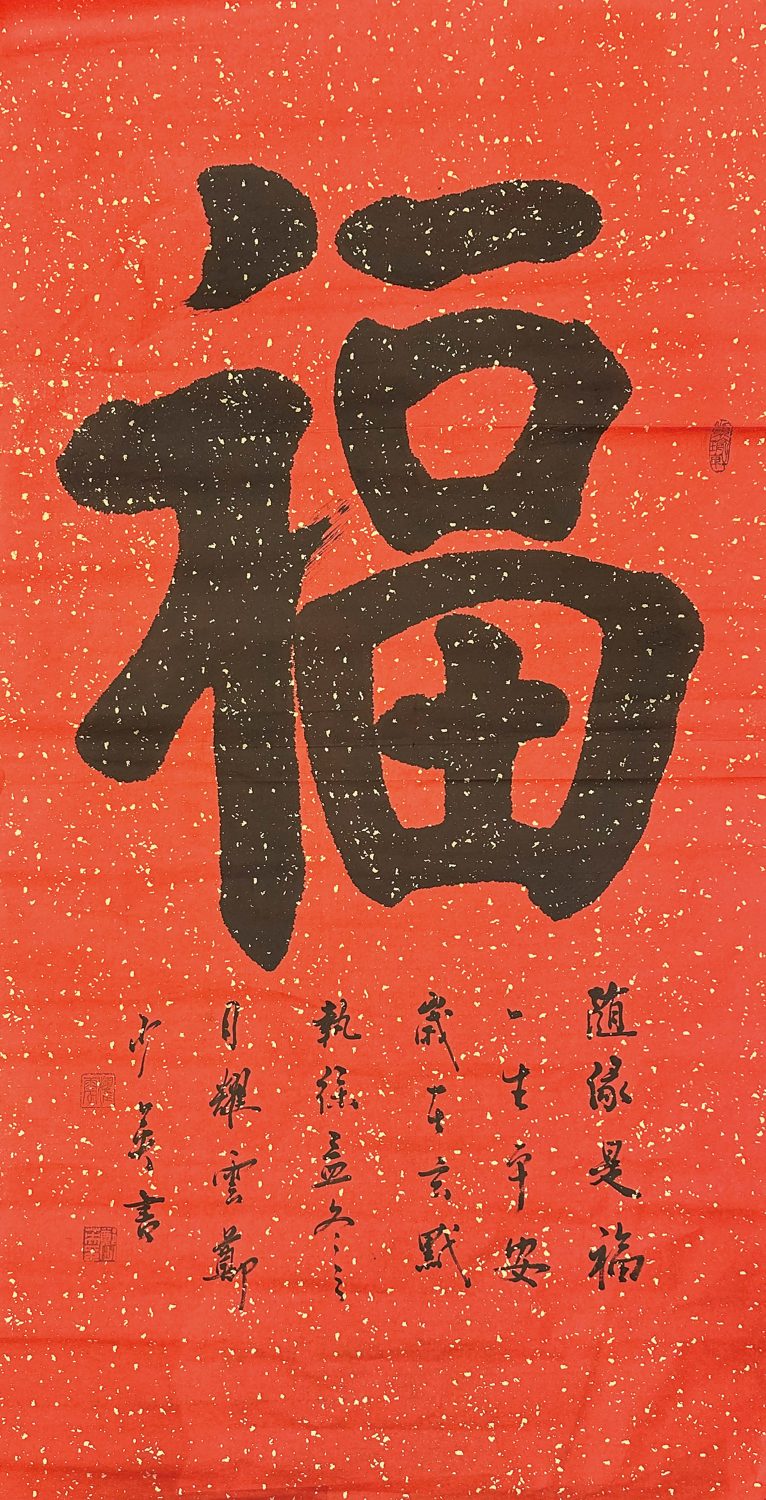 福
隨緣是福
一生平安
歲在玄黓
執徐孟冬之
月耀雲鄭
少英書